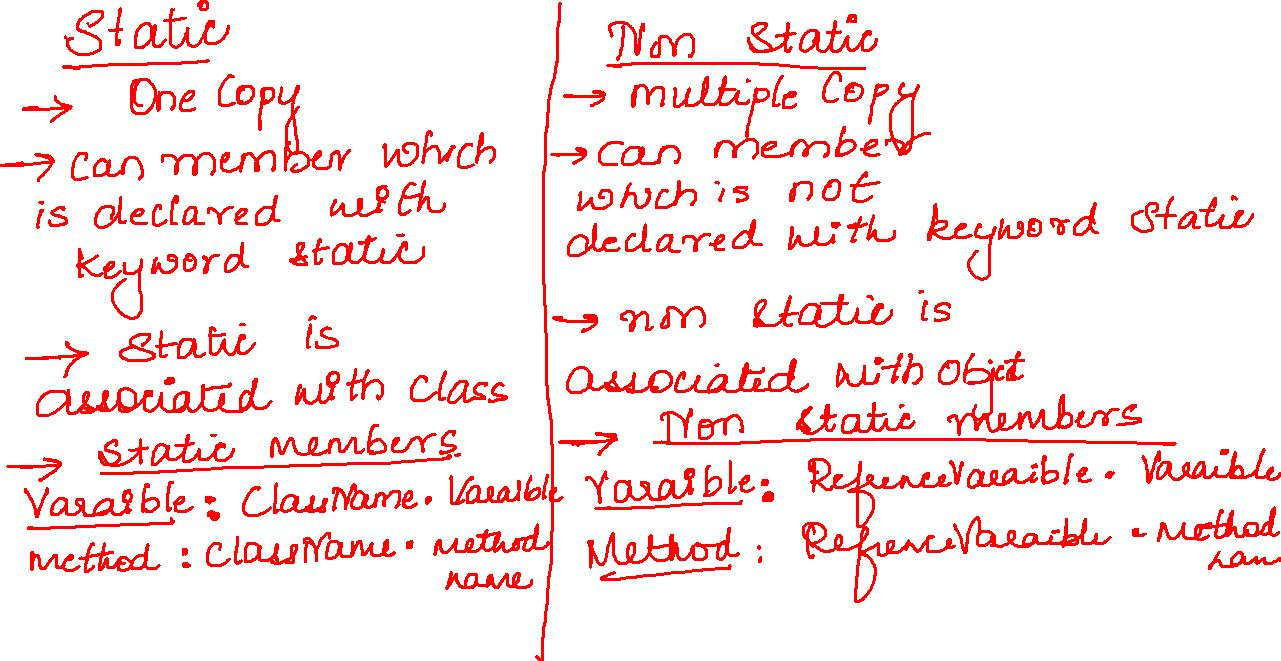 Static
→ One Copy
→ Can member which
is declared with
keyword static
→ Static is
associated with Class
→ Static members
Varaible : ClassName. Varaible
method : ClassName. method
name
Non Static
→ multiple Copy
→ Can member
which is not
declared with keyword Static
→ non static is
associated with Object
→ Non Static members
Varaible : RefrenceVaraible. Varaible
Method : RefrenceVaraible. Method
nam